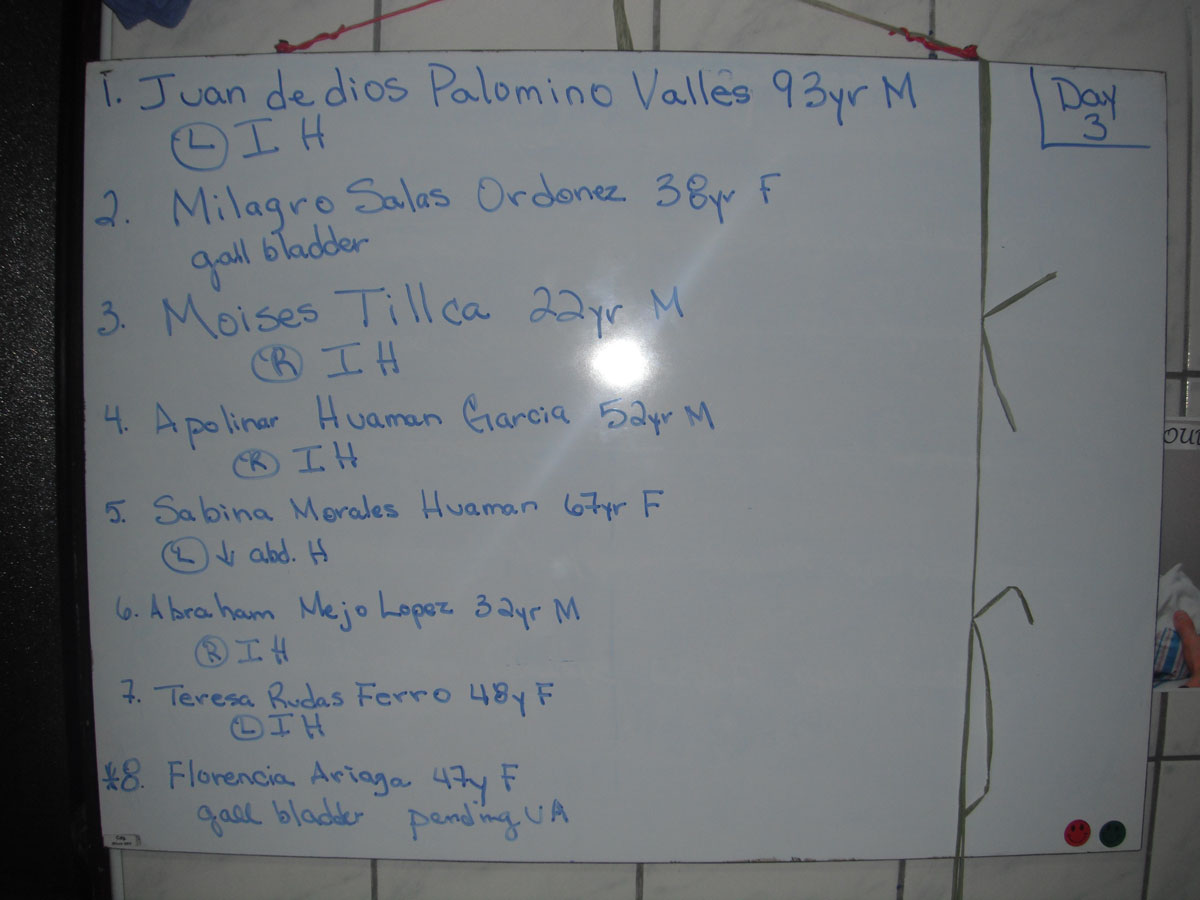 1. Juan de dios Palomino Valles 93yr M
Day
3
Ⓛ I H
2. Milagro Salas Ordonez 38yr F
gall bladder
3. Moises Tillca 22yr M
Ⓡ I H
4. Apolinar Huaman Garcia 52yr M
Ⓡ I H
5. Sabina Morales Huaman 67yr F
Ⓛ ↓ abd. H
6. Abraham Mejo Lopez 32yr M
Ⓡ I H
7. Teresa Rudas Ferro 48y F
Ⓛ I H
*8. Florencia Ariaga 47y F
gall bladder pending UA